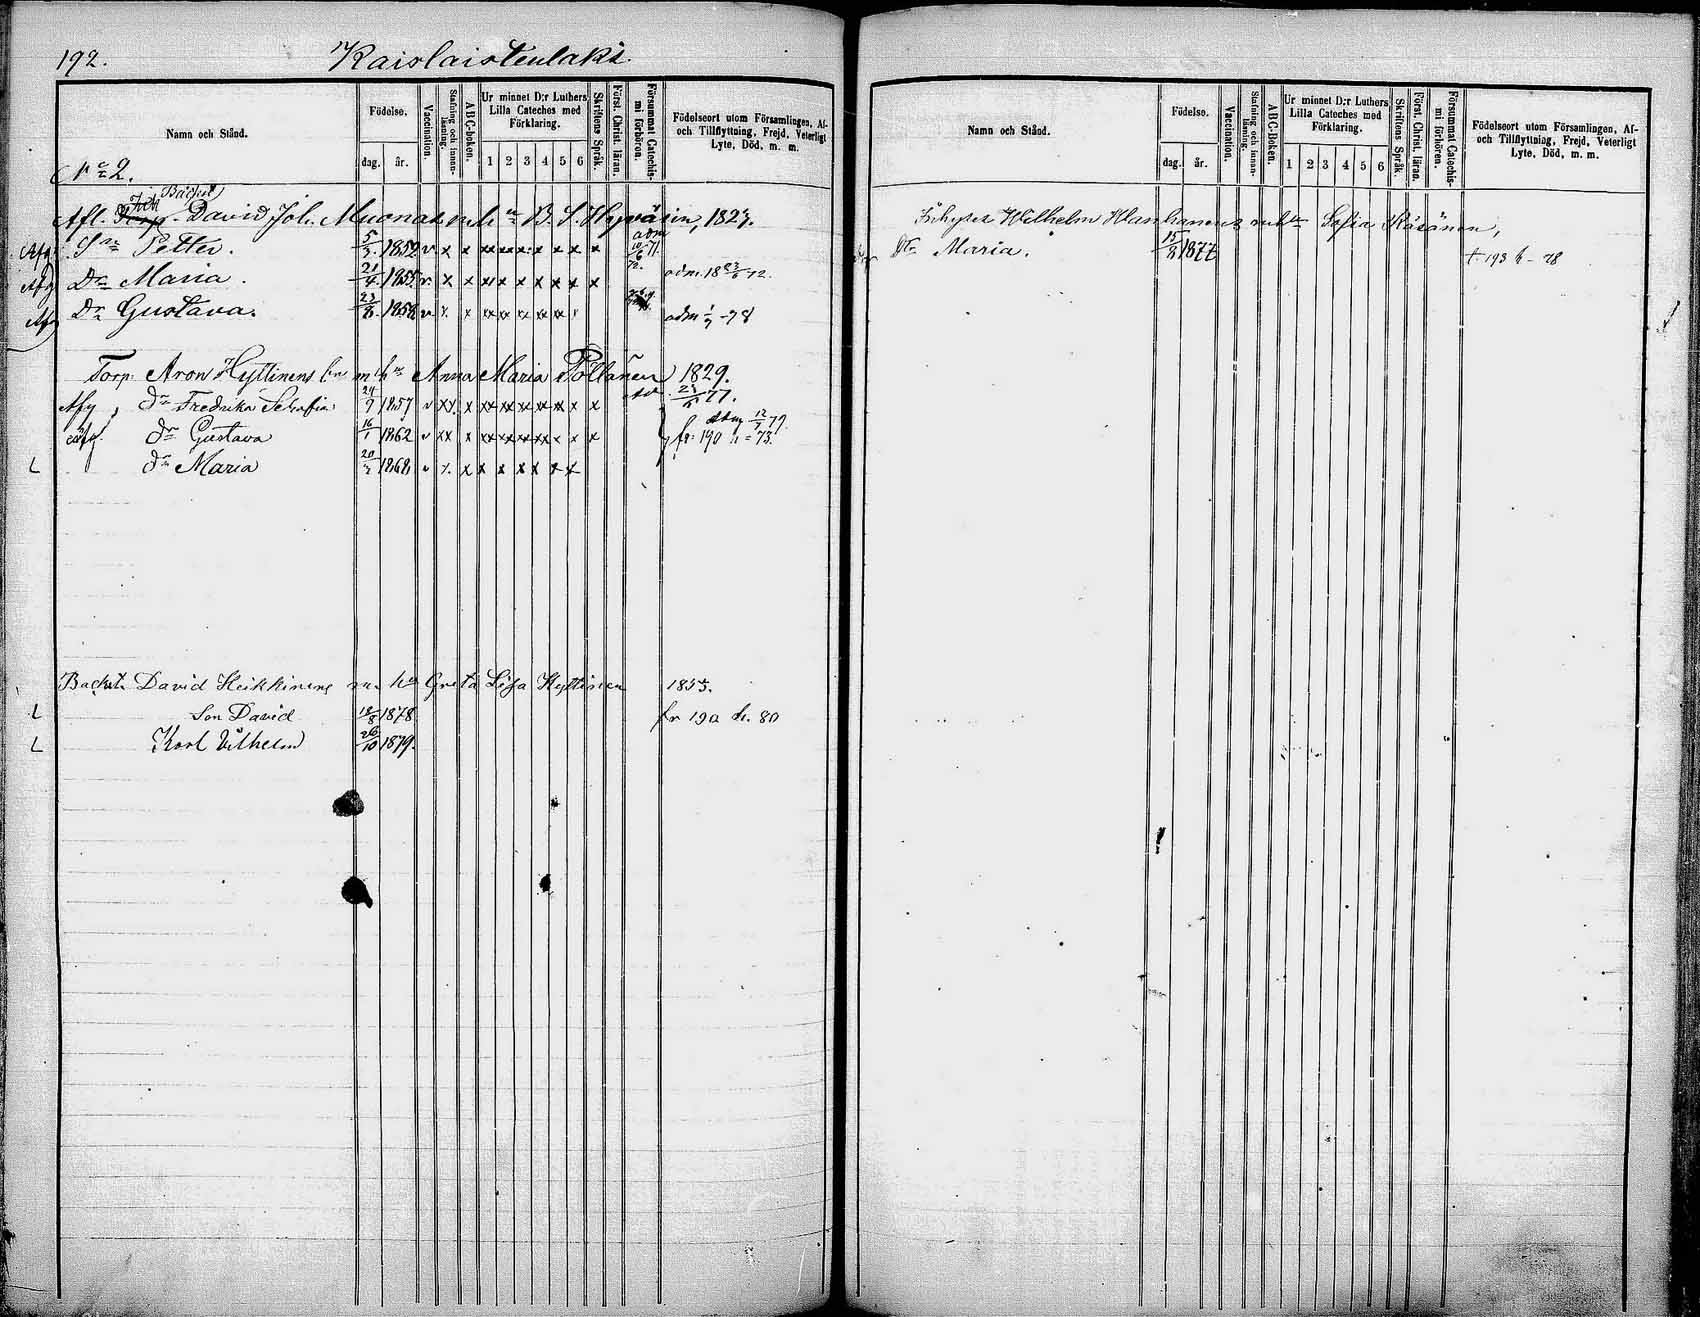 192. Kaislaistenlaks.
Namn och Stånd.
Födelse.
dag. år.
Vaccination.
Stafning och innanläsning.
ABC-boken.
Ur minnet D:r Luthers Lilla Cateches med Förklaring.
1 2 3 4 5 6
Skriftens Språk.
Först. Christ. läran.
Försummat Catechismi förhören.
Födelseort utom Församlingen, Af- och Tillflyttning, Frejd, Veterligt Lyte, Död, m. m.
N:o 2.
Afl. David Joh. Muonas m. h:u B. S. Hyvärin, 1827.
Afg S:n Petter. 5/3. 1852 v x x xx xx x x x x x adm 10/6 71.
Afg D:r Maria. 21/4 1855 v. x x x x x x x x x 72. adm. 18 23/6 72.
Afg D:r Gustava. 1858 v x x xx xx xx xx xx x adm 1/7 -78
Torp. Aron Hyttinens m h:u Anna Maria Pöllänen 1829.
Afg, d:r Fredrika Serafia 24/9 1857 v xx x xx xx xx xx xx x x 77.
afg. d:r Gustava 16/1 1862 v xx x xx xx xx xx x x x 12/7 79. fr. 190 h = 73.
L d:r Maria 20/3 1868 v x x x x x x x x
Backst. David Heikkinens m. h:u Greta Lisa Hyttinen 1855.
L Son David 18/8 1878 fr 190 h. 80
L Karl Vilhelm 26/10 1879.
Namn och Stånd.
Födelse.
dag. år.
Vaccination.
Stafning och innanläsning.
ABC-boken.
Ur minnet D:r Luthers Lilla Cateches med Förklaring.
1 2 3 4 5 6
Skriftens Språk.
Först. Christ. läran.
Försummat Catechismi förhören.
Födelseort utom Församlingen, Af- och Tillflyttning, Frejd, Veterligt Lyte, Död, m. m.
Inhyses Wilhelm Wanhanens m h:u Sofia Räsänen,
D:r Maria. 1877 t. 193 h - 78